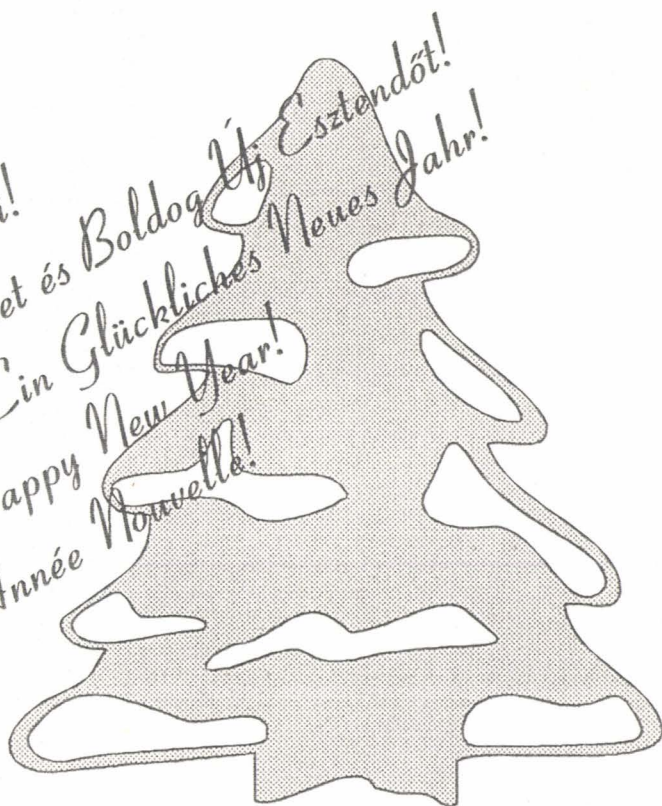 és Boldog Új Esztendőt!
Ein Glückliches Neues Jahr!
New Year!
Année Nouvelle!